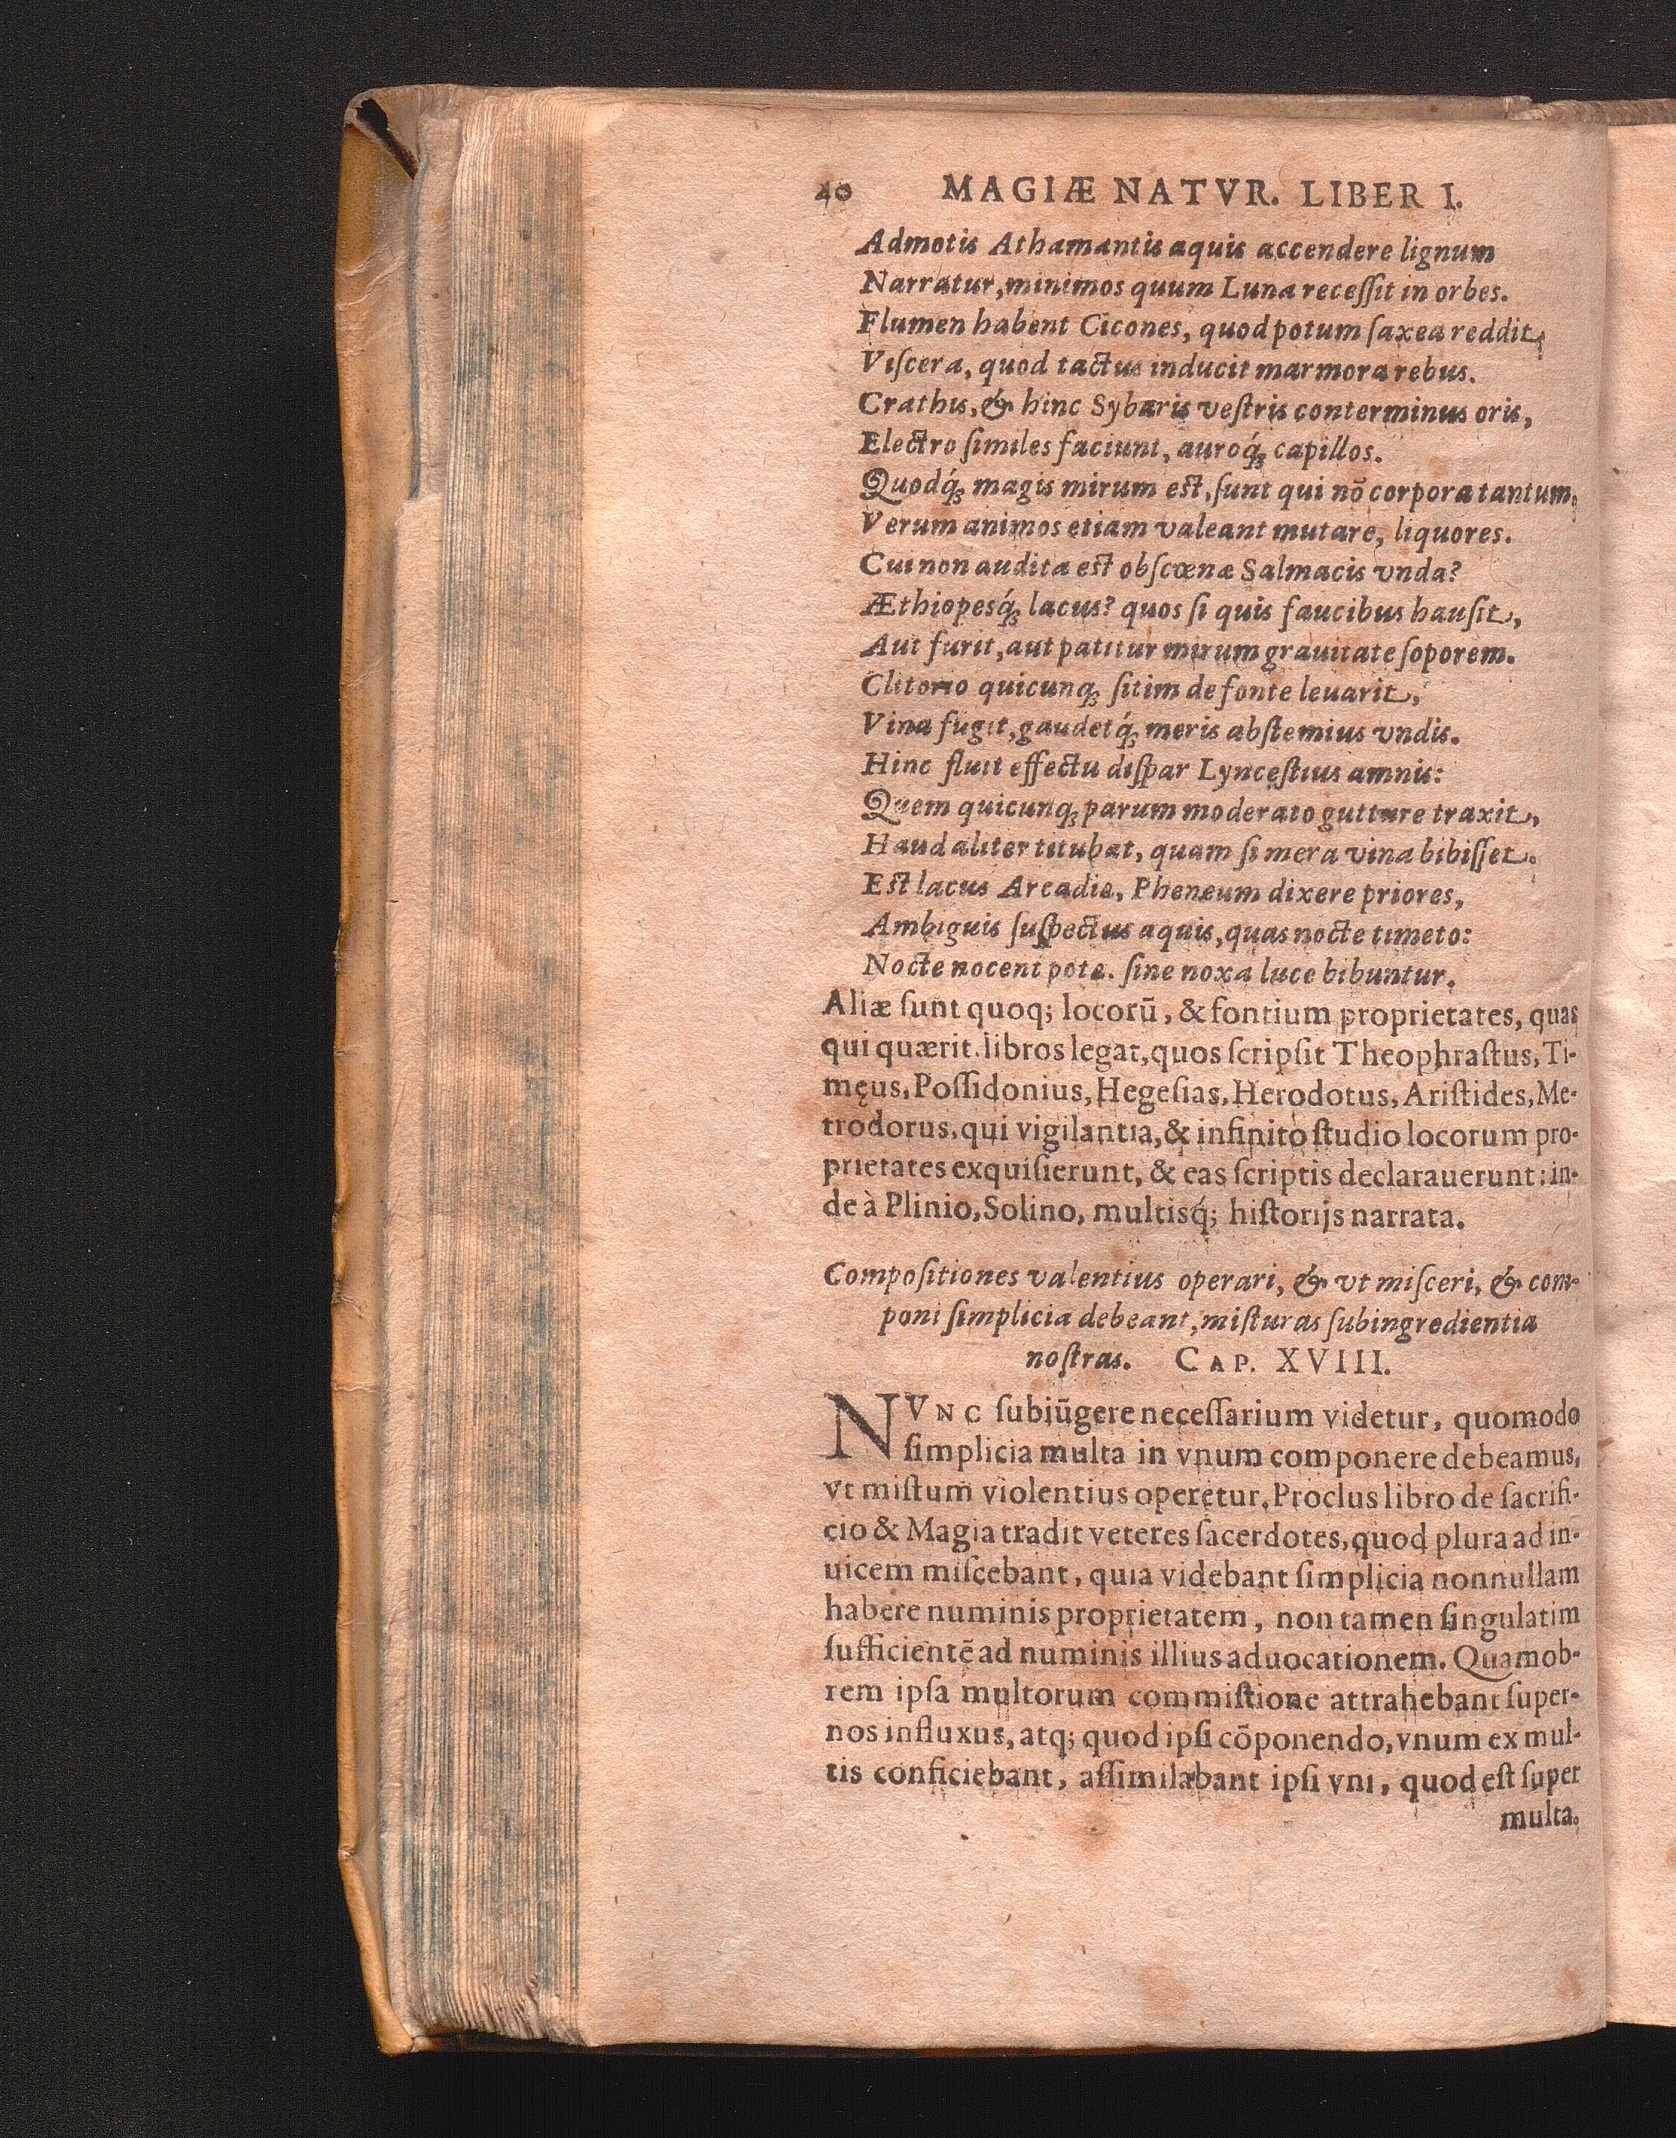 40 MAGIÆ NATVR. LIBER I.
Admotis Athamantis aquis accendere lignum
Narratur, minimos quum Luna receſſit in orbes.
Flumen habent Cicones, quod potum ſaxea reddit,
Viſcera, quod tactus inducit marmora rebus.
Crathis, & hinc Sybaris veſtris conterminus oris,
Electro ſimiles faciunt, auroq́ꝫ capillos.
Quodq́ꝫ magis mirum eſt, ſunt qui nõ corpora tantum,
Verum animos etiam valeant mutare, liquores.
Cui non audita eſt obſcœnæ Salmacis vnda?
Æthiopesq́ꝫ lacus? quos ſi quis faucibus hauſit,
Aut furit, aut patitur mirum grauitate ſoporem.
Clitorio quicunqꝫ ſitim de fonte leuarit,
Vina fugit, gaudetq́ꝫ meris abſtemius vndis.
Hinc fluit effectu diſpar Lynceſtius amnis:
Quem quicunqꝫ parum moderato gutture traxit,
Haud aliter titubat, quam ſi mera vina bibiſſet.
Eſt lacus Arcadiæ, Pheneum dixere priores,
Ambiguis ſuſpectus aquis, quas nocte timeto:
Nocte nocent potæ. ſine noxa luce bibuntur.
Aliæ ſunt quoq; locorũ, & fontium proprietates, quas
qui quærit. libros legat, quos ſcripſit Theophraſtus, Ti-
męus, Poſſidonius, Hegeſias, Herodotus, Ariſtides, Me-
trodorus, qui vigilantia, & infinito ſtudio locorum pro-
prietates exquiſierunt, & eas ſcriptis declarauerunt: in-
de à Plinio, Solino, multisq́; hiſtorijs narrata.
Compoſitiones valentius operari, & vt miſceri, & com-
poni ſimplicia debeant, miſturas ſubingredientia
noſtras. CAP. XVIII.
NVNC ſubiũgere neceſſarium videtur, quomodo
ſimplicia multa in vnum componere debeamus,
vt miſtum violentius operetur. Proclus libro de ſacrifi-
cio & Magia tradit veteres ſacerdotes, quod plura ad in-
uicem miſcebant, quia videbant ſimplicia nonnullam
habere numinis proprietatem, non tamen ſingulatim
ſufficientẽ ad numinis illius aduocationem. Quamob-
rem ipſa multorum commiſtione attrahebant ſuper-
nos influxus, atq; quod ipſi cõponendo, vnum ex mul-
tis conficiebant, aſſimilabant ipſi vni, quod eſt ſuper
multa.